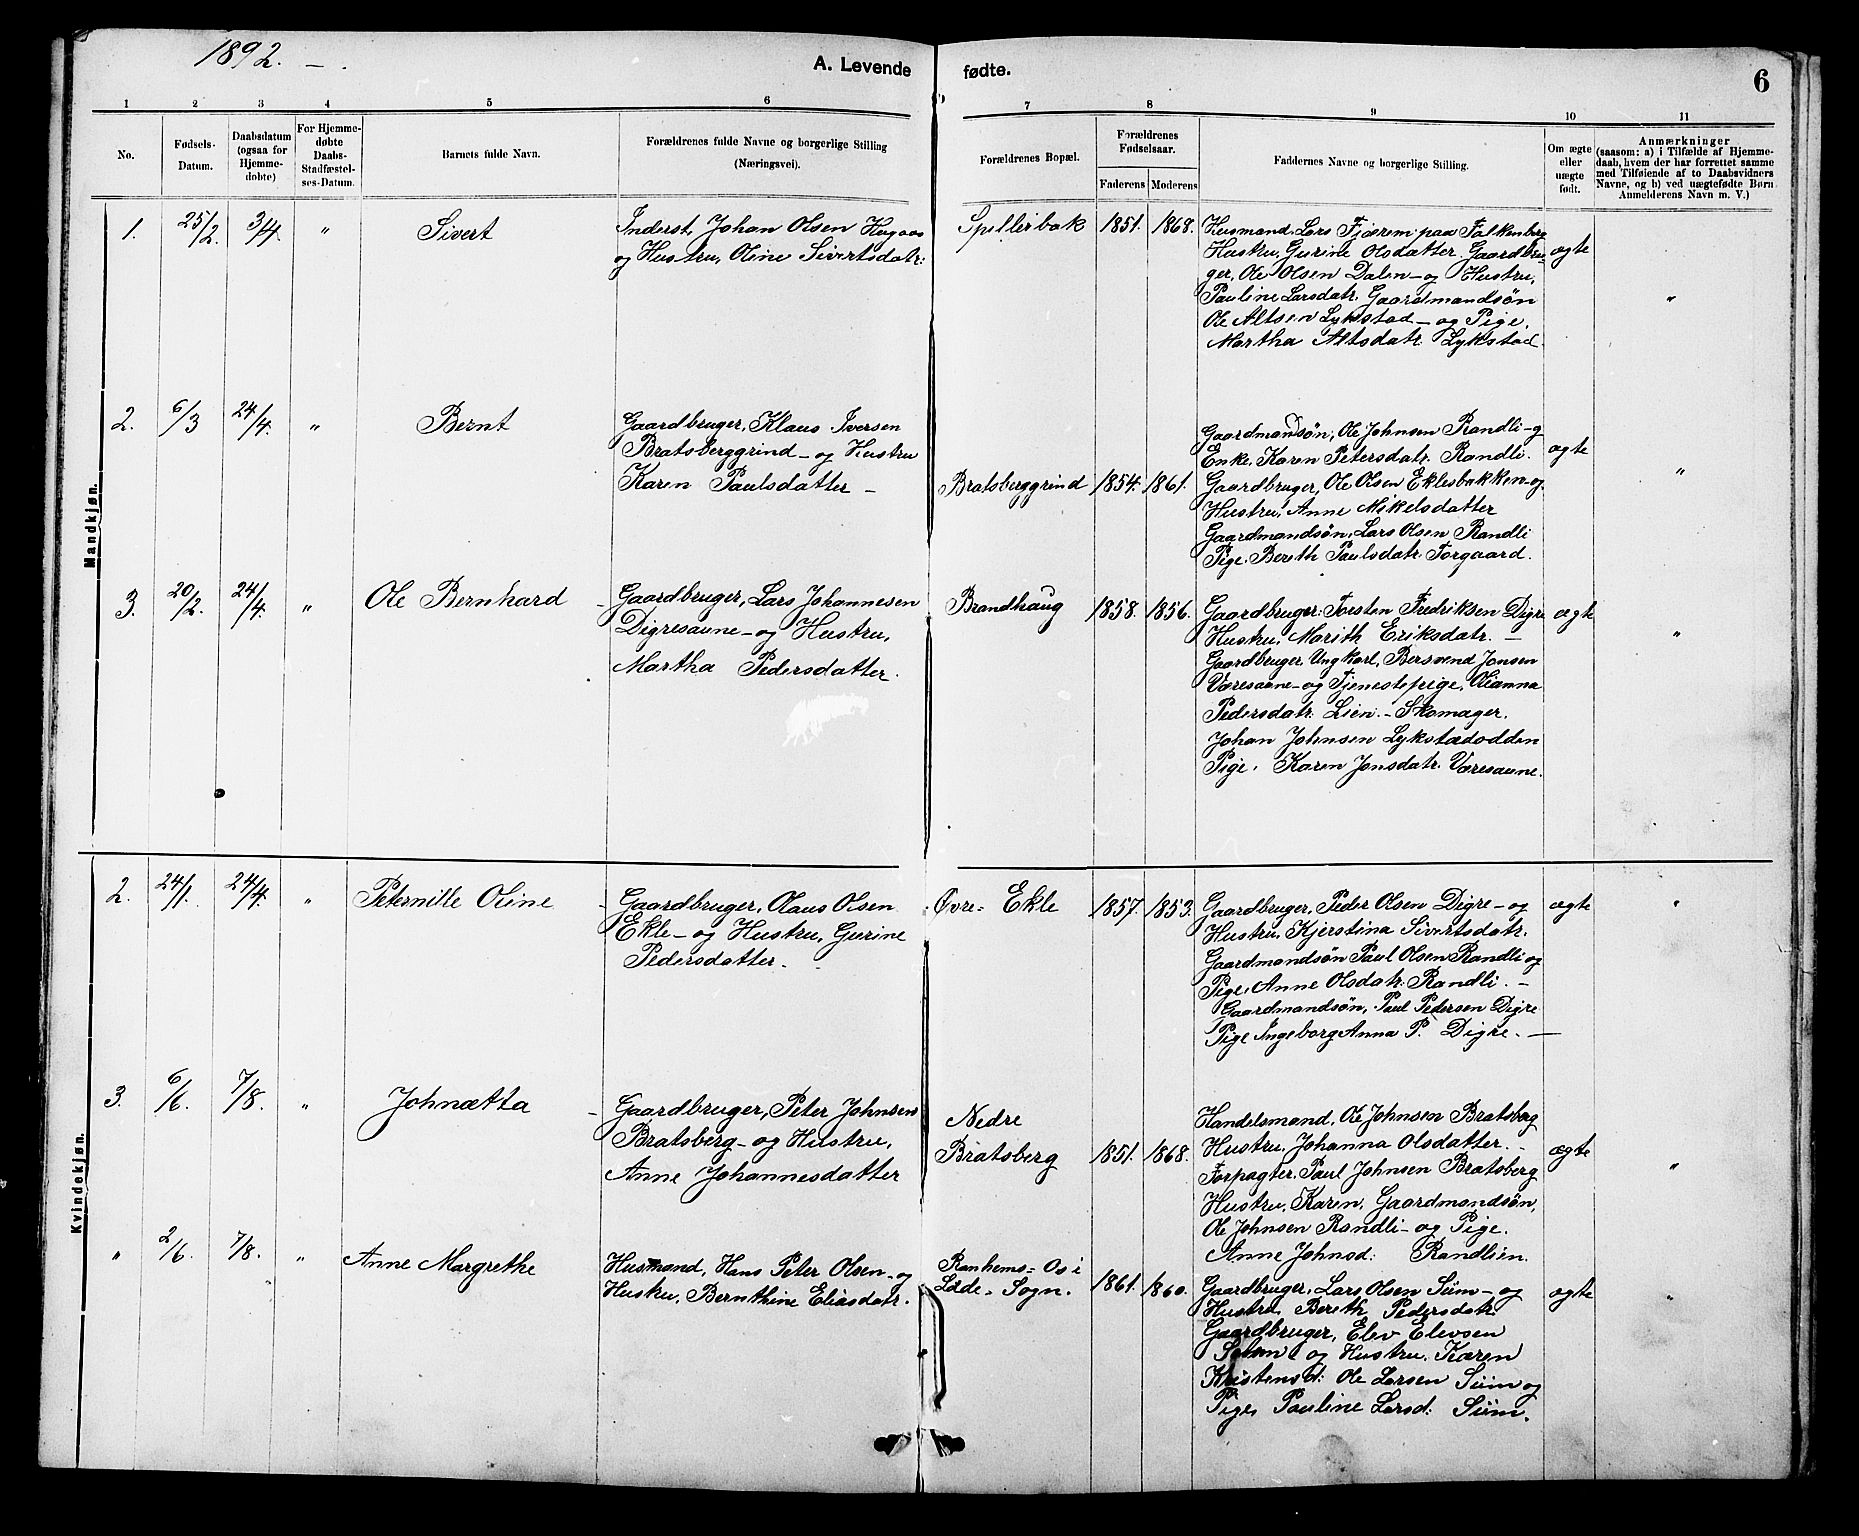 1892. –.
A. Levende fødte.
6
1 2 3 4 5 6 7 8 9 10 11
No.
Fødsels-
Datum.
Daabsdatum
(ogsaa for
Hjemme-
døbte)
For Hjemme-
døbte
Daabs-
Stadfæstel-
ses-Datum.
Barnets fulde Navn.
Forældrenes fulde Navne og borgerlige Stilling
(Næringsvei).
Forældrenes Bopæl.
Forældrenes
Fødselsaar.
Faderens Moderens
Faddernes Navne og borgerlige Stilling.
Om ægte
eller
uægte
født.
Anmærkninger
(saasom: a) i Tilfælde af Hjemme-
daab, hvem der har forrettet samme
med Tilføiende af to Daabsvidners
Navne, og b) ved uægtefødte Børn
Anmelderens Navn m. V.)
Mandkjøn.
1. 25/2. 3/4. " Sivert
Inderst, Johan Olsen Hugaas
og Hustru, Oline Sivertsdatr:
Spellerbak 1851. 1868.
Husmand, Lars Fjærem paa Falkenberg
Hustru, Gurine Olsdatter. Gaardbru-
ger, Ole Olsen Dalen – og Hustru,
Pauline Larsdatr. Gaardmandsøn
Ole Altsen Lykstad – og Pige,
Martha Altsdatr. Lykstad.
ægte "
2. 6/3 24/4. " Bernt
Gaardbruger, Klaus Iversen
Bratsberggrind – og Hustru
Karen Paulsdatter –
Bratsberggrind 1854. 1861.
Gaardmandsøn, Ole Johnsen Randli – og
Enke, Karen Petersdatr. Randli.
Gaardbruger, Ole Olsen Eklesbakken – og
Hustru, Anne Mikelsdatter
Gaardmandsøn, Lars Olsen Randli
Pige, Bereth Paulsdatr. Torgaard.
ægte "
3. 20/2. 24/4. " Ole Bernhard –
Gaardbruger, Lars Johannesen
Digresaune – og Hustru,
Martha Pedersdatter.
Brandhaug 1858. 1856.
Gaardbruger, Torsten Fredriksen Digre
Hustru, Marith Eriksdatr. –
Gaardbruger Ungkarl, Bersvend Jonsen
Væresaune – og Tjenestepige, Olianna
Pedersdatr. Lien. – Skomager.
Johan Johnsen Lykstadodden
Pige, Karen Jonsdatr. Væresaune.
ægte "
Kvindekjøn.
2. 24/1. 24/4. " Peternille Oline –
Gaardbruger, Olaus Olsen
Ekle – og Hustru, Gurine
Pedersdatter.
Øvre = Ekle 1857. 1853.
Gaardbruger, Peder Olsen Digre – og
Hustru, Kjerstina Sivertsdatr.
Gaardmandsøn Paul Olsen Randli og
Pige, Anne Olsdatr: Randli. –
Gaardmandsøn, Paul Pedersen Digre
Pige Ingeborg Anna P. Digre. –
ægte "
3. 6/6. 7/8. " Johnætta –
Gaardbruger, Peter Johnsen
Bratsberg – og Hustru,
Anne Johannesdatter
Nedre
Bratsberg 1851. 1868.
Handelsmand, Ole Johnsen Bratsberg
Hustru, Johanna Olsdatter. –
Forpagter, Paul Johnsen Bratsberg
Hustru, Karen, Gaardmandsøn,
Ole Johnsen Randli – og Pige.
Anne Johnsd: Randlien.
ægte "
" 2/6. 7/8. " Anne Margrethe
Husmand, Hans Peter Olsen – og
Hustru, Bernthine Eliasdatr.
Ranhems = Os i
Lade – Sogn. 1861. 1860.
Gaardbruger, Lars Olsen Siim – og
Hustru, Bereth Pedersdatr.
Gaardbruger, Elev Elevsen
og Hustru, Karen
Kristensd: Ole Larsen Siim og
Pige, Pauline Larsd: Siim.
ægte "